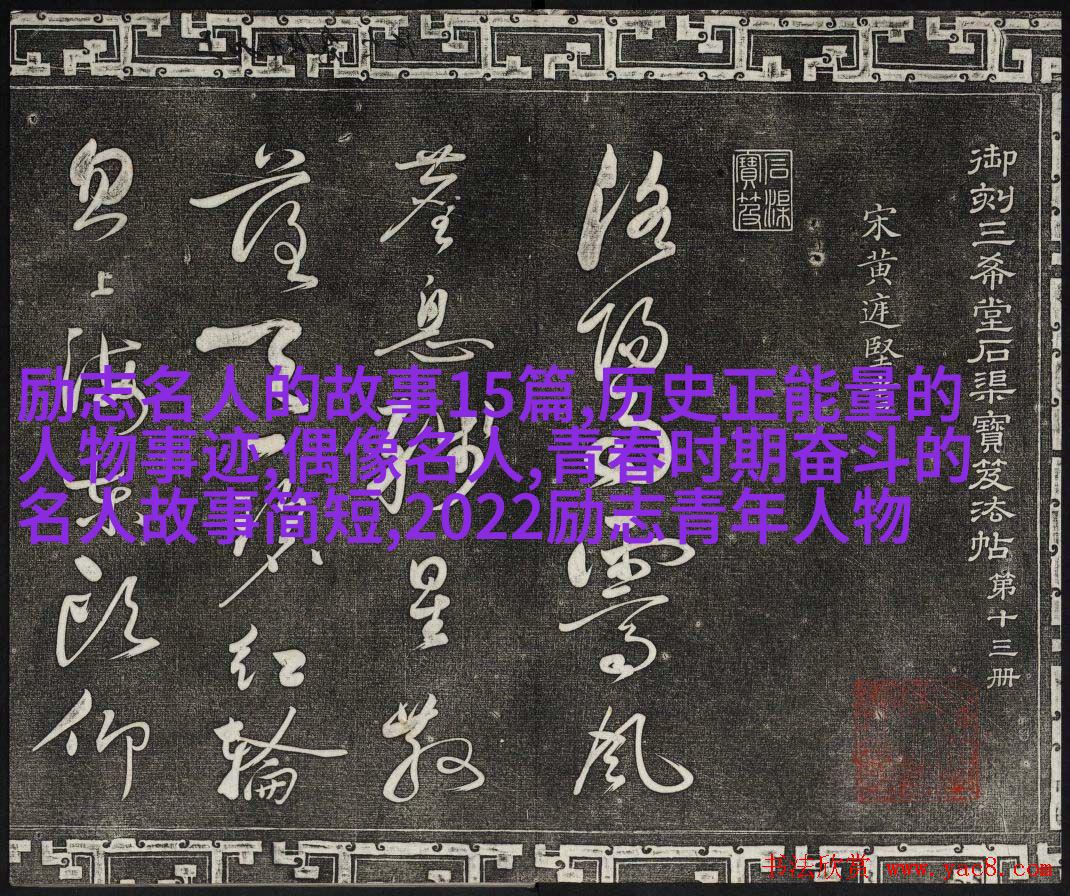 御刻三希堂石渠寶笈法帖第十三册
宋黄庭堅
石渠寶笈
洛陽 風
息 星散
天 紅輪
忽上海東頭仰
励志名人的故事15篇,历史正能量的
人物事迹,偶像名人,青春时期奋斗的
名人故事简短,2022励志青年人物
书法欣赏 www.yac8.com